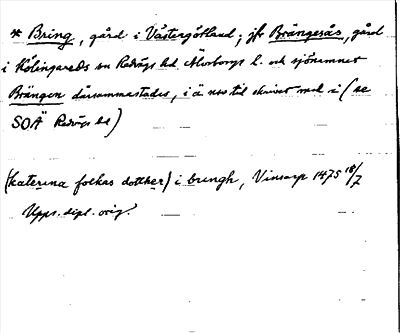 * Bring, gård i Västergötland; jfr Brängesås, gård
i Kölingareds sn Redvägs hd Älvsborgs l. och sjönamnet
Brängen därsammastädes, i ä nss tid skrivet med i (se
SOÄ Redvägs hd)
(katerina folkas dotther) i bringh, Vinsarp 1475 18/7
Upps. dipl. orig.